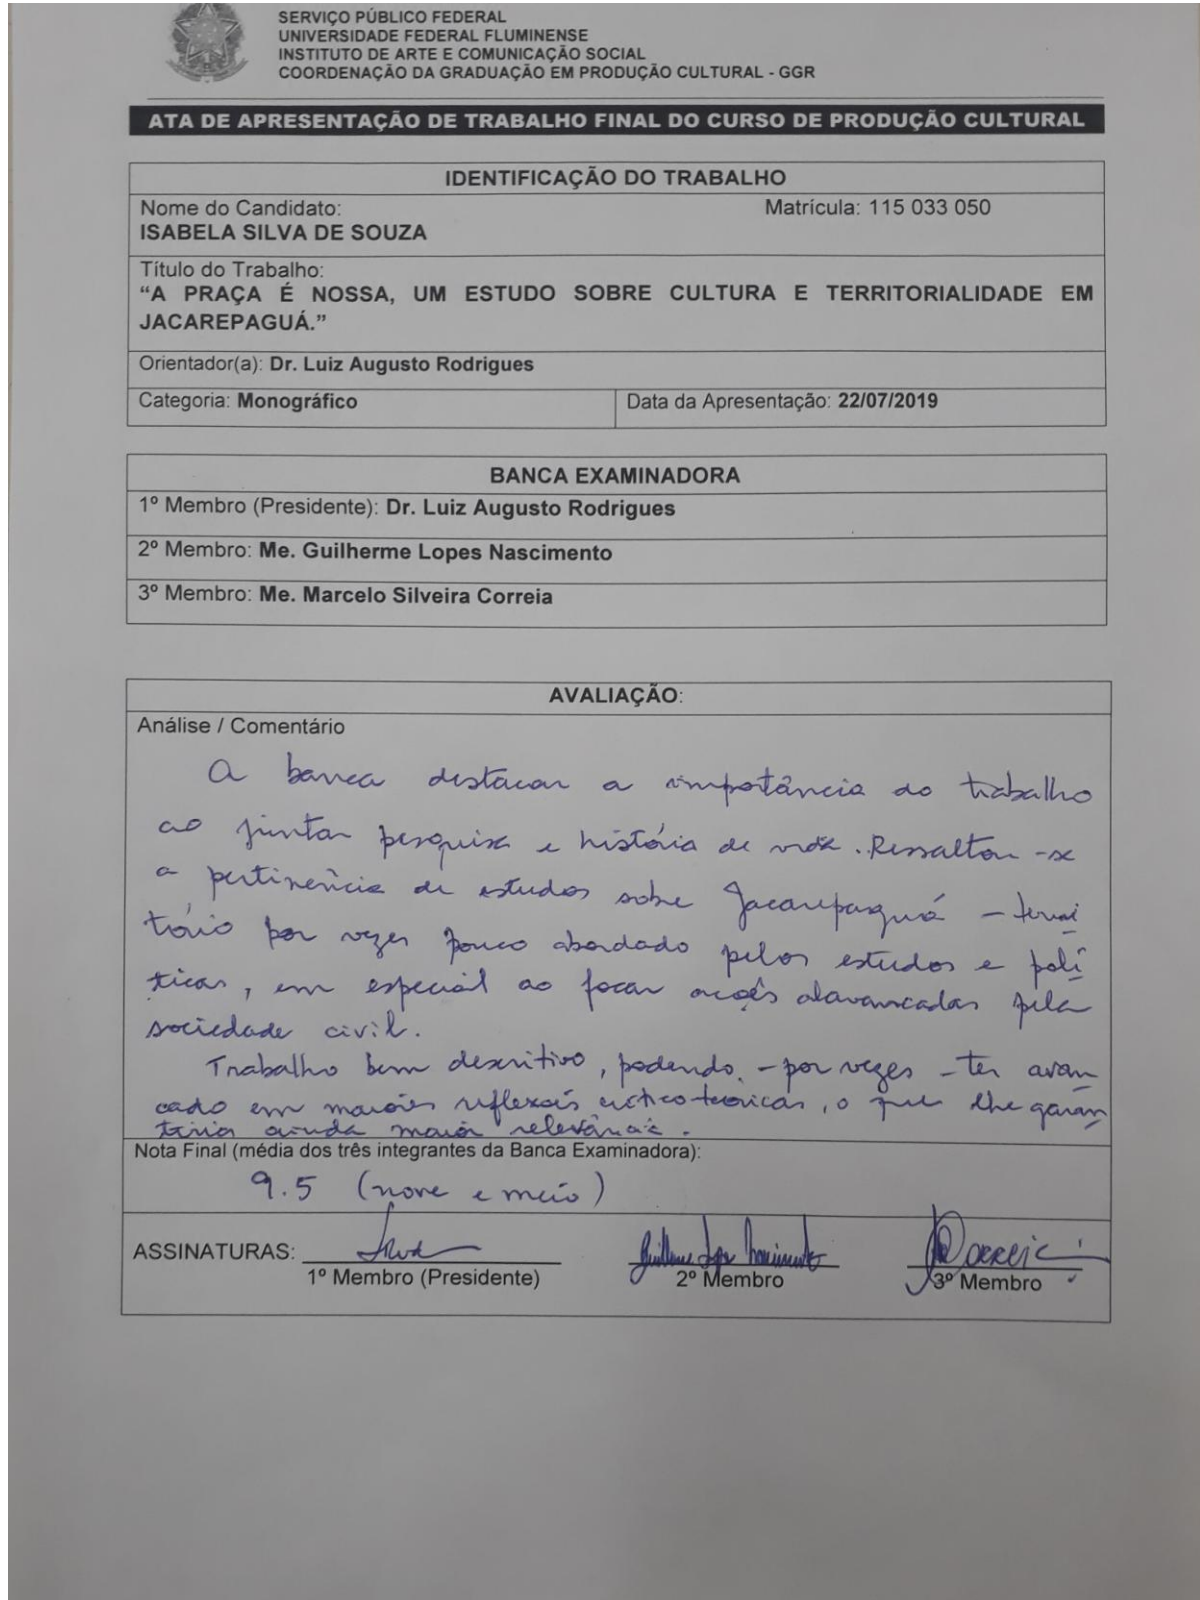 SERVIÇO PÚBLICO FEDERAL
UNIVERSIDADE FEDERAL FLUMINENSE
INSTITUTO DE ARTE E COMUNICAÇÃO SOCIAL
COORDENAÇÃO DA GRADUAÇÃO EM PRODUÇÃO CULTURAL - GGR
ATA DE APRESENTAÇÃO DE TRABALHO FINAL DO CURSO DE PRODUÇÃO CULTURAL
IDENTIFICAÇÃO DO TRABALHO
Nome do Candidato: Matrícula: 115 033 050
ISABELA SILVA DE SOUZA
Título do Trabalho:
“A PRAÇA É NOSSA, UM ESTUDO SOBRE CULTURA E TERRITORIALIDADE EM
JACAREPAGUÁ.”
Orientador(a): Dr. Luiz Augusto Rodrigues
Categoria: Monográfico Data da Apresentação: 22/07/2019
BANCA EXAMINADORA
1º Membro (Presidente): Dr. Luiz Augusto Rodrigues
2º Membro: Me. Guilherme Lopes Nascimento
3º Membro: Me. Marcelo Silveira Correia
AVALIAÇÃO:
Análise / Comentário
A banca destacou a importância do trabalho
ao juntar pesquisa e história de vida. Ressaltou-se
a pertinência de estudos sobre Jacarepaguá - terri
tório por vezes pouco abordado pelos estudos e polí
ticas, em especial ao focar ações alavancadas pela
sociedade civil.
Trabalho bem descritivo, podendo - por vezes - ter avan
çado em maiores reflexões crítico-teóricas, o que lhe garan
tiria ainda maior relevância.
Nota Final (média dos três integrantes da Banca Examinadora):
9.5 (nove e meio)
ASSINATURAS: Guilherme Lopes Nascimento Correia
1º Membro (Presidente) 2º Membro 3º Membro